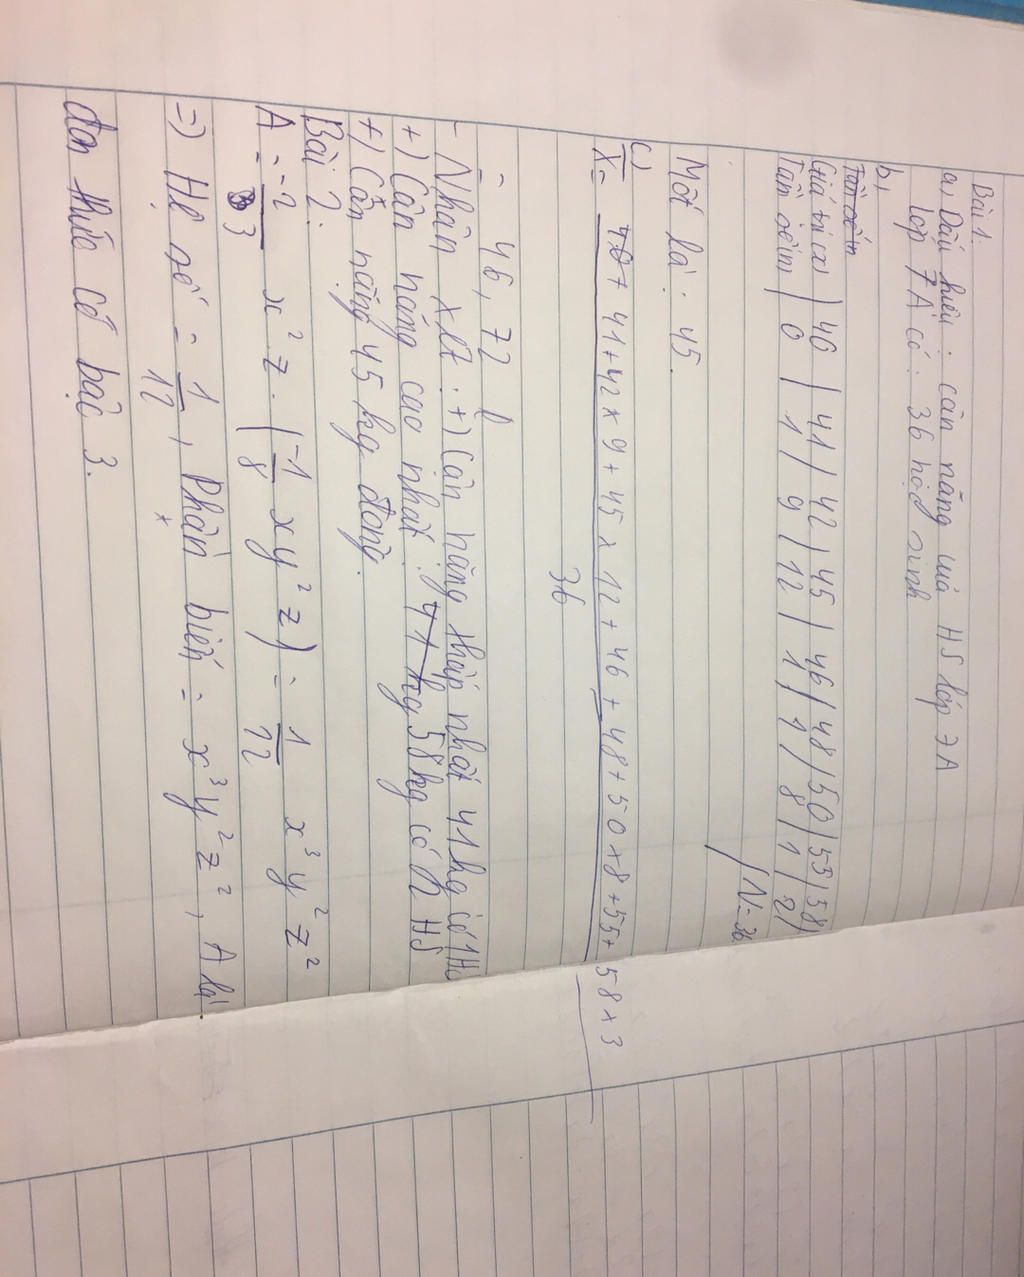 Bài 1.
a, Dấu hiệu: cân nặng mà HS lớp 7A
lớp 7A có: 36 học sinh
b,
Tần số n
Giá trị (x) | 40 | 41 | 42 | 45 | 46 | 48 | 50 | 55 | 58 |
Tần số (n) | 0 | 1 | 9 | 12 | 1 | 1 | 8 | 1 | 2 |
N=36
Mốt là: 45.
c,
X = 40 + 41 + 42 x 9 + 45 x 12 + 46 + 48 + 50 x 8 + 55 + 58 x 3
36
= 46,72
- Nhận xét: +) Cân nặng thấp nhất 41 kg có 1 HS
+) Cân nặng cao nhất: 41 kg 58 kg có 2 HS
+) Cân nặng 45 kg đông.
Bài 2.
A = -2/3 x² z . (-1/8 x y² z) = 1/12 x³ y² z²
=) Hệ số = 1/12, Phần biến = x³ y² z², A là
đơn thức có bậc 3.